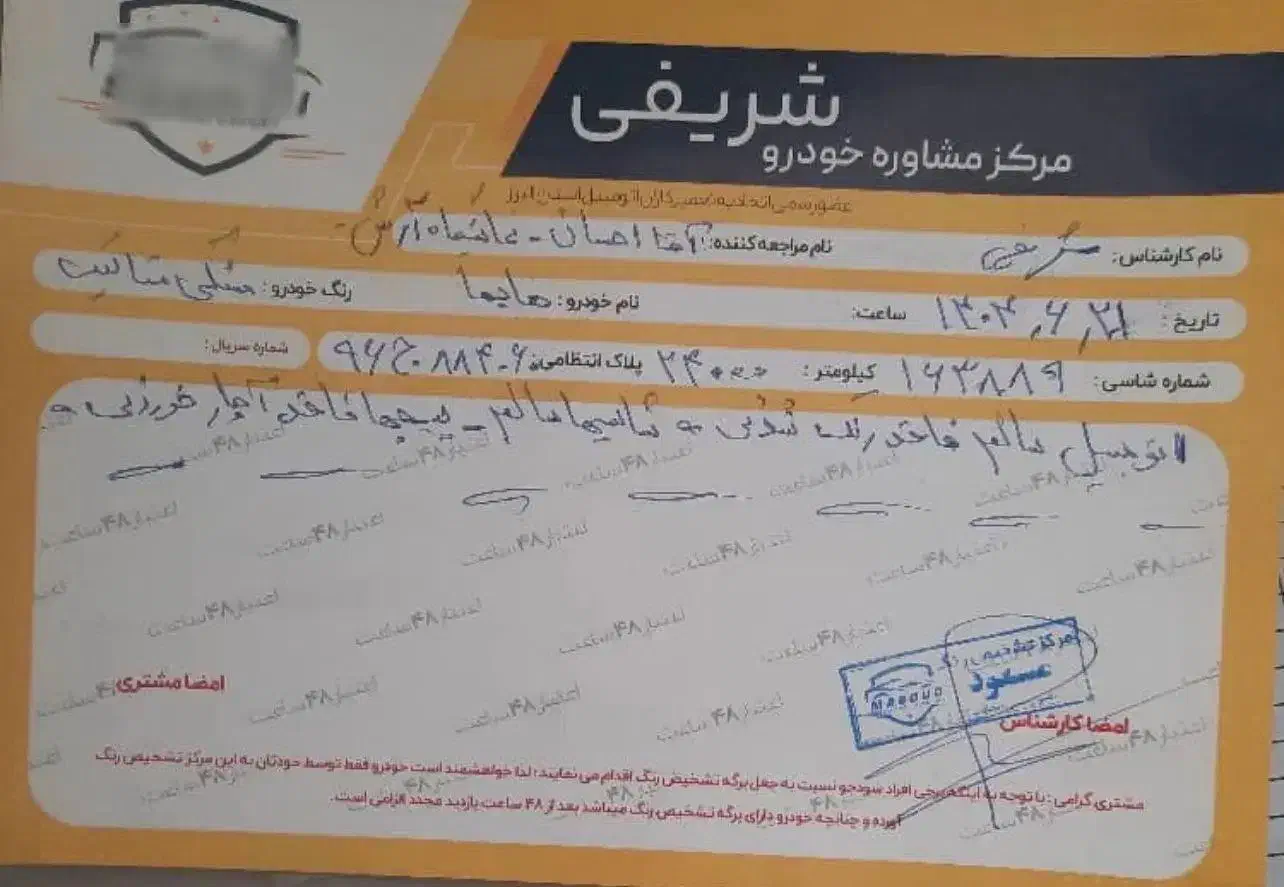 شریفی
مرکز مشاوره خودرو
عضو رسمی اتحادیه تعمیرکاران اتومبیل استان البرز
نام کارشناس: شریفی نام مراجعه کننده: آقا احسان - نمایشگاه آرش
تاریخ: ۱۴۰۳,۶,۲۱ ساعت: نام خودرو: هایما رنگ خودرو: مشکی متالیک
شماره شاسی: ۱۶۳۸۸۹ کیلومتر: ۲۴۰۰۰ پلاک انتظامی: شماره سریال:
اتومبیل سالم فاقد رنگ شدگی و شاسیها سالم - پیچها فاقد آچار خوردگی و
اعتبار ۴۸ ساعت
مرکز تشخیص رنگ
مسعود
MASOUD
امضا مشتری
امضا کارشناس
مشتری گرامی: با توجه به اینکه برخی افراد سودجو نسبت به جعل برگه تشخیص رنگ اقدام می نمایند؛ لذا خواهشمند است خودرو فقط توسط خودتان به این مرکز تشخیص رنگ
آورده و چنانچه خودرو دارای برگه تشخیص رنگ میباشد بعد از ۴۸ ساعت بازدید مجدد الزامی است.